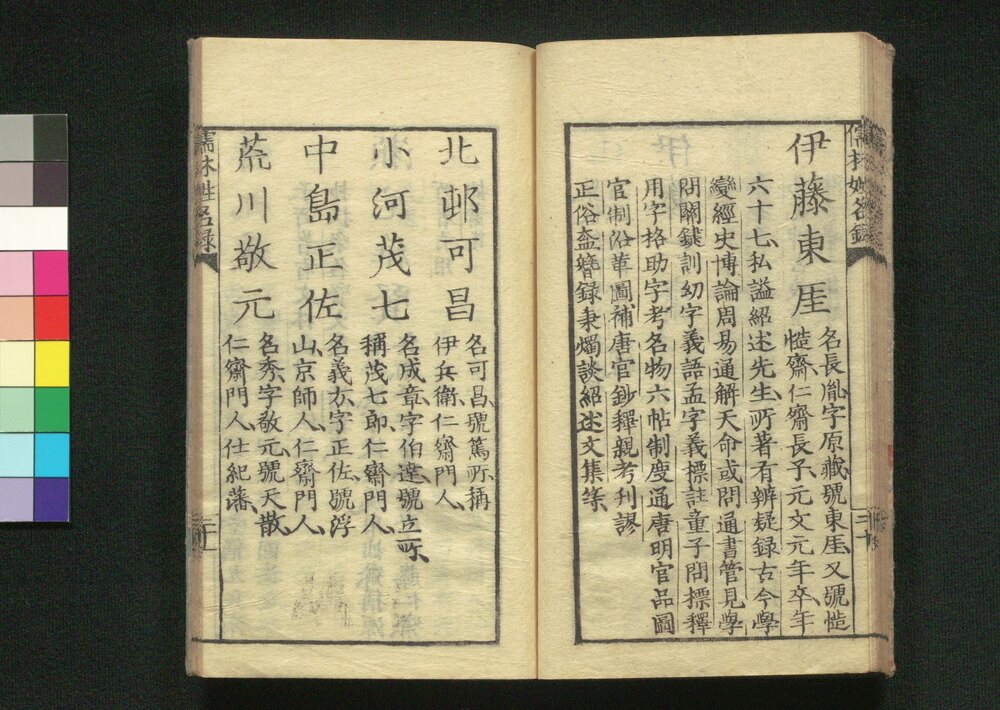 儒林姓名録
伊藤東厓
名長胤、字原藏、號東厓、又號慥
慥齋、仁齋長子、元文元年卒、年
六十七、私謚紹述先生、所著有辨疑録古今學
變經史博論周易通解天命或問通書管見學
問關鍵訓幼字義語孟字義標註童子問標釋
用字格助字考名物六帖制度通唐明官品圖
官制沿革圖補唐官鈔釋親考刊謬
正俗盍簪録秉燭談紹述文集等、
北邨可昌
名可昌、號篤所、稱
伊兵衛、仁齋門人、
小河茂七
名成章、字伯達、號立所、
稱茂七郎、仁齋門人、
中島正佐
名義方、字正佐、號浮
山、京師人、仁齋門人、
荒川敬元
名秀、字敬元、號天散、
仁齋門人、仕紀藩、
儒林姓名録